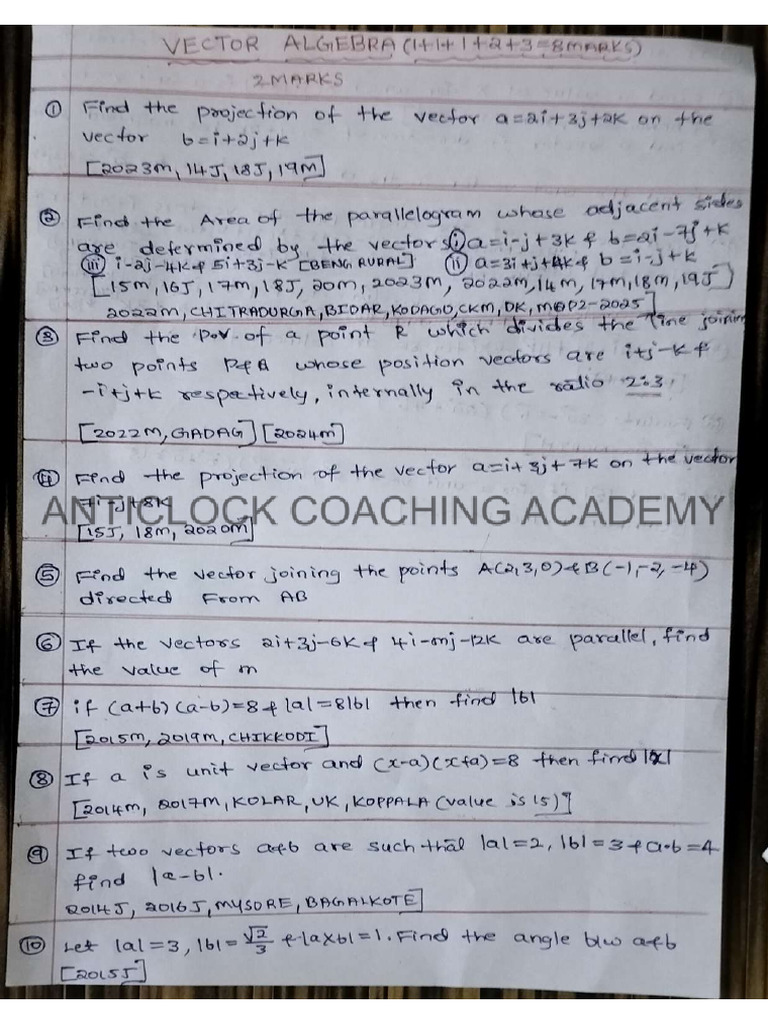 VECTOR ALGEBRA (1+1+1+2+3=8MARKS)
2MARKS
① Find the projection of the vector a=2i+3j+2k on the
vector b=i+2j+k
[2023M, 14J, 18J, 19M]
② Find the Area of the parallelogram whose adjacent sides
are determined by the vectors ⓘ a=i-j+3k & b=2i-7j+k
(iii) i-2j-4k & 5i+3j-k [BENG RURAL] (ii) a=3i+j+4k & b=i-j+k
[15M, 16J, 17M, 18J, 20M, 2023M, 2022M, 14M, 17M, 18M, 19J]
2022M, CHITRADURGA, BIDAR, KODAGU, CKM, DK, MQP2-2025]
③ Find the Pov of a point R which divides the line joining
two points P&Q whose position vectors are i+j-k &
-i+j+k respectively, internally in the ratio 2:3.
[2022M, GADAG] [2024M]
④ Find the projection of the vector a=i+3j+7k on the vector
7i-j+8k
ANTICLOCK COACHING ACADEMY
[15J, 18M, 2020M]
⑤ Find the vector joining the points A(2,3,0) & B(-1,-2,-4)
directed From AB
⑥ If the vectors 2i+3j-6k & 4i-mj-12k are parallel, find
the value of m
⑦ if (a+b) (a-b)=8 & |a|=8|b| then find |b|
[2015M, 2019M, CHIKKODI]
⑧ If a is unit vector and (x-a)(x+a)=8 then find |x|
[2014M, 2017M, KOLAR, UK, KOPPALA (value is 15)]
⑨ If two vectors a&b are such that |a|=2, |b|=3 & a·b=4
find |a-b|.
2014J, 2016J, MYSORE, BAGALKOTE]
⑩ Let |a|=3, |b|=√2/3 & |axb|=1. Find the angle b/w a&b
[2015J]